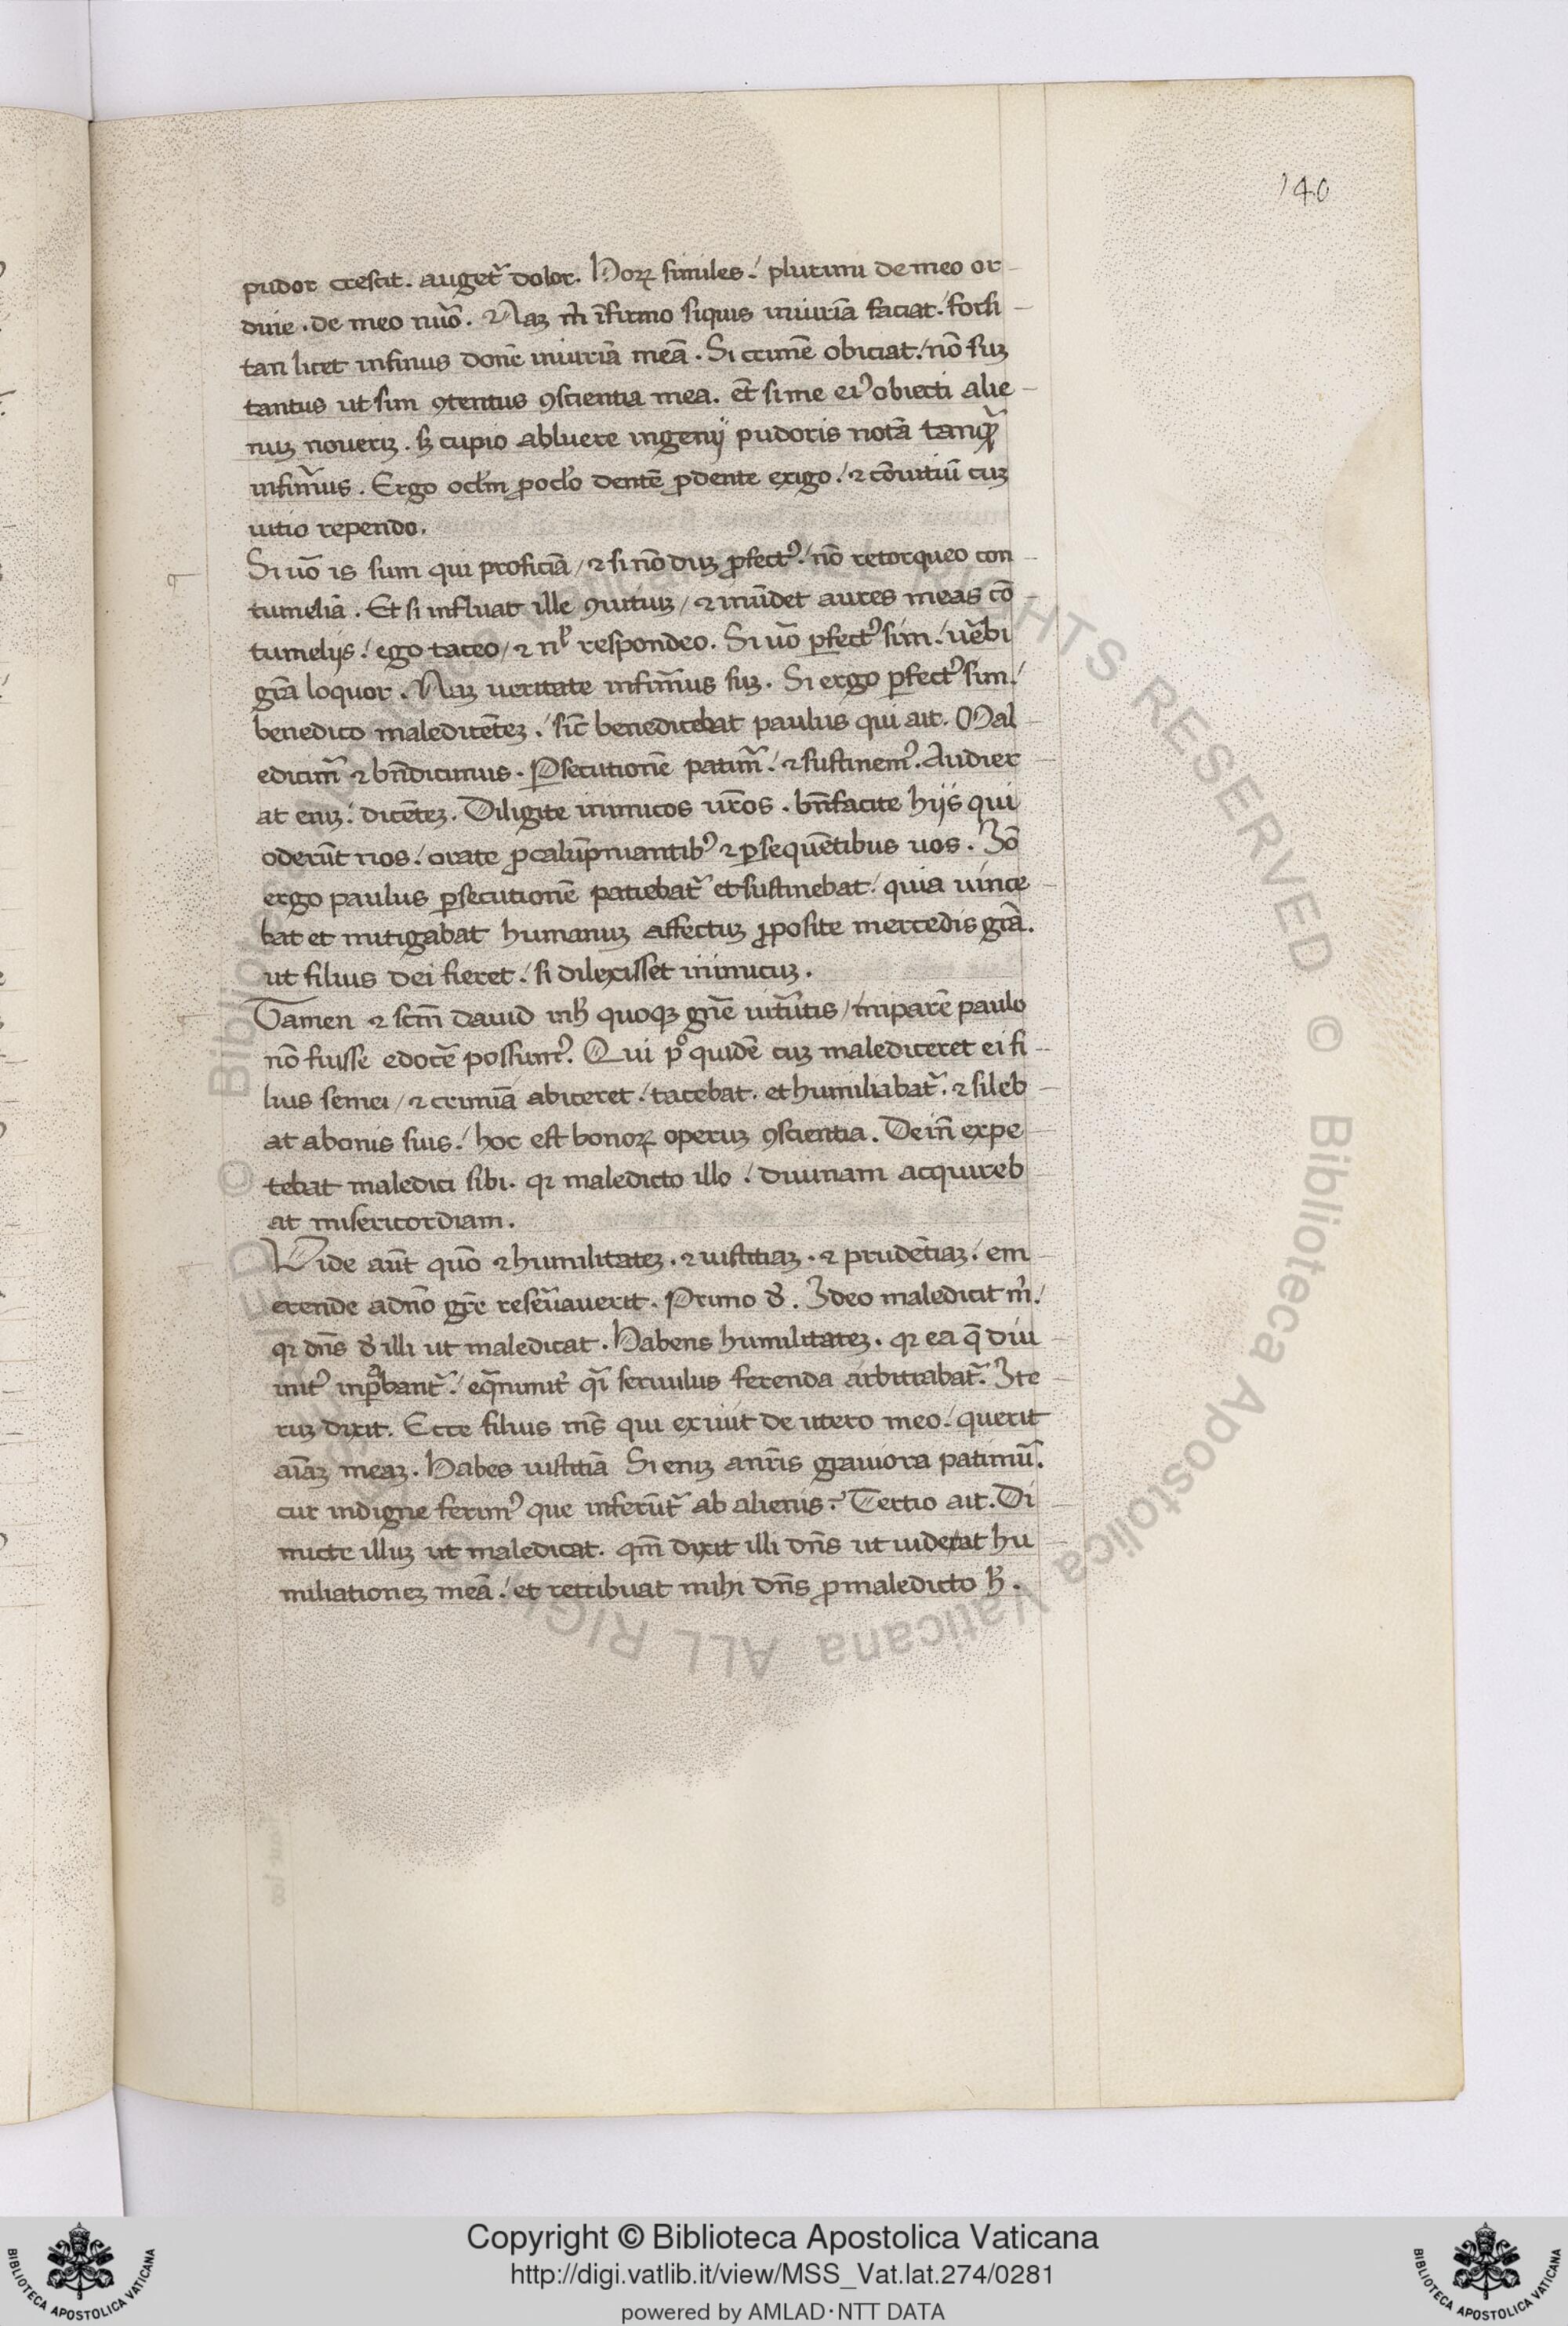 140
pudor crescit. auget᷑ dolor. Hoꝝ similes / plurimi de meo or
dine. de meo nūo. Naꝫ m̄ īfirmo siquis iniuriā faciat / forsi
tan licet infirmus donē iniuriā meā. Si crimē obiciat / nō suꝫ
tantus ut sim ꝯtentus ꝯscientia mea. et̄ si me eiꝰ obiecti alie
nuꝫ noueriꝫ. sꝫ cupio abluere ingenij pudoris notā tanqꝫ̄
infirmus. Ergo oclm̄ ꝓ oclo dentē ꝓ dente exigo / ⁊ cōuitiū cuꝫ
uitio rependo.
Si uō is sum qui proficiā / ⁊ si nō duꝫ ꝑfectꝰ / nō retorqueo con
tumeliā. Et si influat ille ꝯuitiuꝫ / ⁊ inūdet aures meas cō
tumelijs / ego taceo / ⁊ nl̄ respondeo. Si uō ꝑfectꝰ sim / ūebi
grā loquor. Naꝫ ueritate infirmus suꝫ. Si ergo ꝑfectꝰ sim /
benedico maledicēteꝫ / sic̄ benedicebat paulus qui ait. Mal
edicim᷑ ⁊ bn̄dicimus. Ꝑsecutionē patim᷑ / ⁊ sustinemꝰ. Audier
at eniꝫ / dicēteꝫ. Diligite inimicos ur̄os. bn̄facite hijs qui
oderūt uos / orate ꝓ calūpniantibꝰ ⁊ ꝑsequētibus uos. Iō
ergo paulus ꝑsecutionē patiebat᷑ et sustinebat / quia uince
bat et mitigabat humanuꝫ affectuꝫ ꝓposite mercedis grā.
ut filius dei fieret / si dilexisset inimicuꝫ.
Tamen ⁊ scm̄ dauid in h̄ quoqꝫ gn̄e uirtūtis / imparē paulo
nō fuisse edocē possumꝰ. Qui pº quidē cuꝫ malediceret ei fi
lius semei / ⁊ crimīa abiceret / tacebat. et humiliabat᷑. ⁊ sileb
at a bonis suis / hoc est bonoꝝ operuꝫ ꝯscientia. Dein̄ expe
tebat maledici sibi. qꝛ maledicto illo / diuinam acquireb
at misericordiam.
Vide aūt quō ⁊ humilitateꝫ. ⁊ iustitiaꝫ. ⁊ prudētiaꝫ / em
erende a dn̄o gr̄e reseruauerit. Primo d̄. Ideo maledicit m̄ /
qꝛ dn̄s d̄ illi ut maledicat. Habens humilitateꝫ. qꝛ ea q̄ diui
nitꝰ inꝑbant᷑ / eqnimit᷑ qi seruulus ferenda arbitrabat᷑. Ite
ruꝫ dixit. Ecce filius ms̄ qui exiuit de utero meo / querit
aīaꝫ meaꝫ. Habes iustitiā Si eniꝫ a nr̄is grauiora patimū.
cur indigne ferimꝰ que inferūt᷑ ab alienis. Tertio ait. Di
micte illuꝫ ut maledicat. qm̄ dixit illi dn̄s ut uiderat hu
miliationeꝫ meā / et retribuat mihi dn̄s ꝓ maledicto h̄.
© Biblioteca Apostolica Vaticana ALL RIGHTS RESERVED © Biblioteca Apostolica Vaticana ALL RIGHTS RESERVED
Copyright © Biblioteca Apostolica Vaticana
http://digi.vatlib.it/view/MSS_Vat.lat.274/0281
powered by AMLAD·NTT DATA
BIBLIOTECA APOSTOLICA VATICANA
BIBLIOTECA APOSTOLICA VATICANA